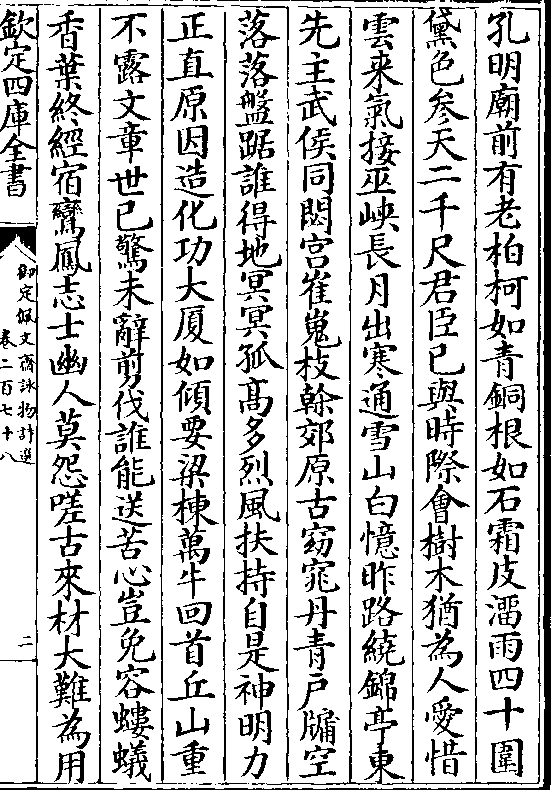 孔明廟前有老柏柯如青銅根如石霜皮溜雨四十圍
黛色參天二千尺君臣已與時際㑹樹木猶為人愛惜
雲來氣接巫峽長月出寒通雪山白憶昨路繞錦亭東
先主武侯同閟宮崔嵬枝幹郊原古窈窕丹青戸牖空
落落盤踞誰得地冥冥孤髙多烈風扶持自是神明力
正直原因造化功大厦如傾要梁棟萬牛回首丘山重
不露文章世已驚未辭剪伐誰能送苦心豈免容螻蟻
香葉終經宿鸞鳳志士幽人莫怨嗟古來材大難為用
欽定四庫全書
御定佩文齋詠物詩選
卷二百七十八
二